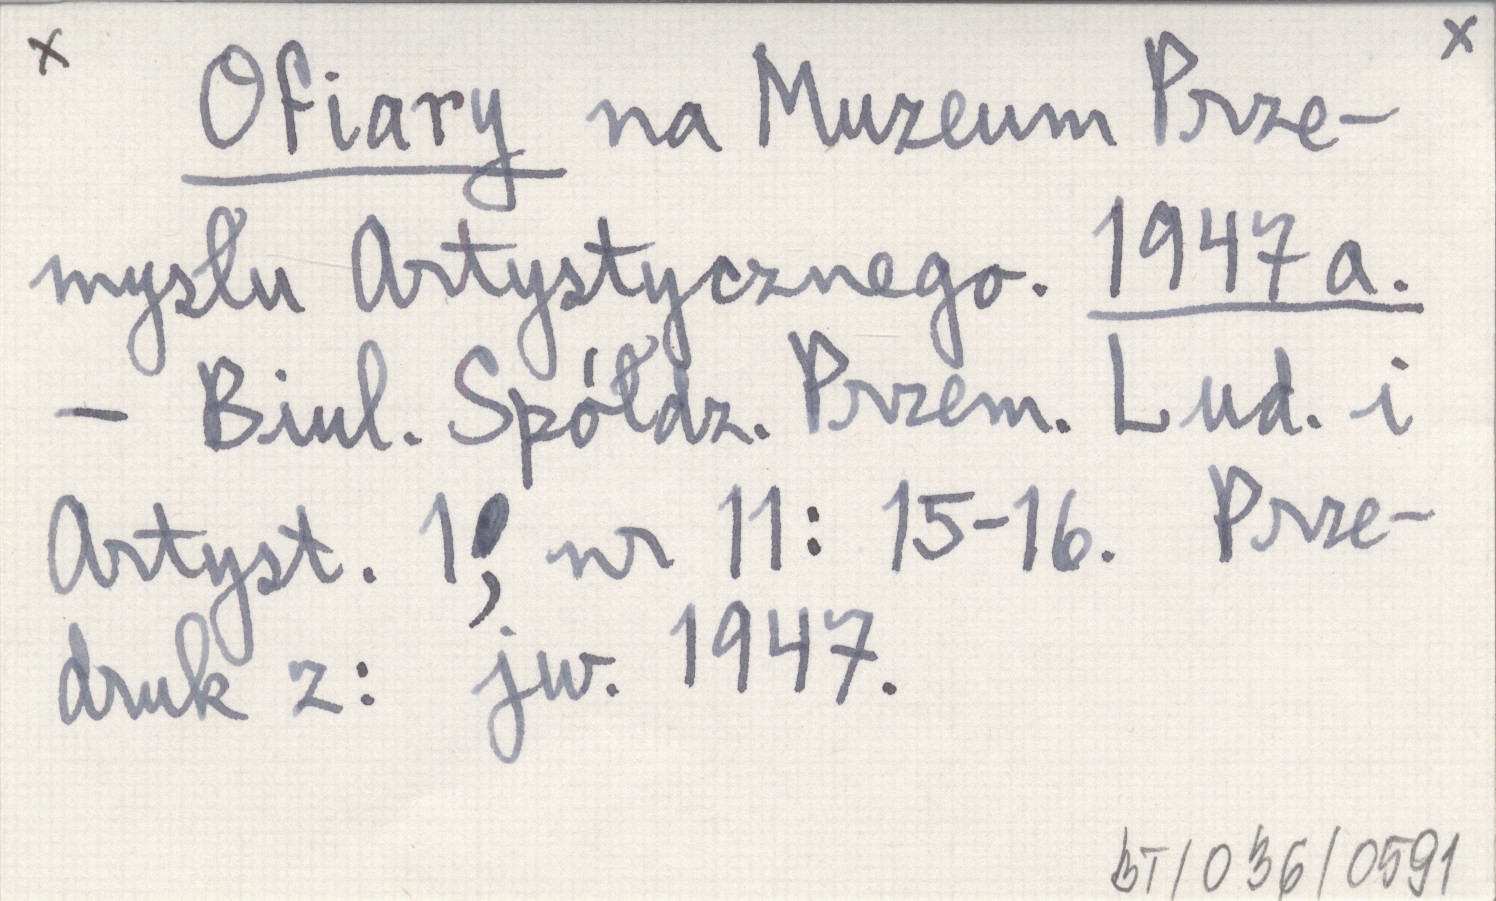 x x
Ofiary na Muzeum Prze-
mysłu Artystycznego. 1947a.
— Biul. Spółdz. Przem. Lud. i
Artyst. 1, nr 11: 15-16. Prze-
druk z: jw. 1947.
BT/036/0591